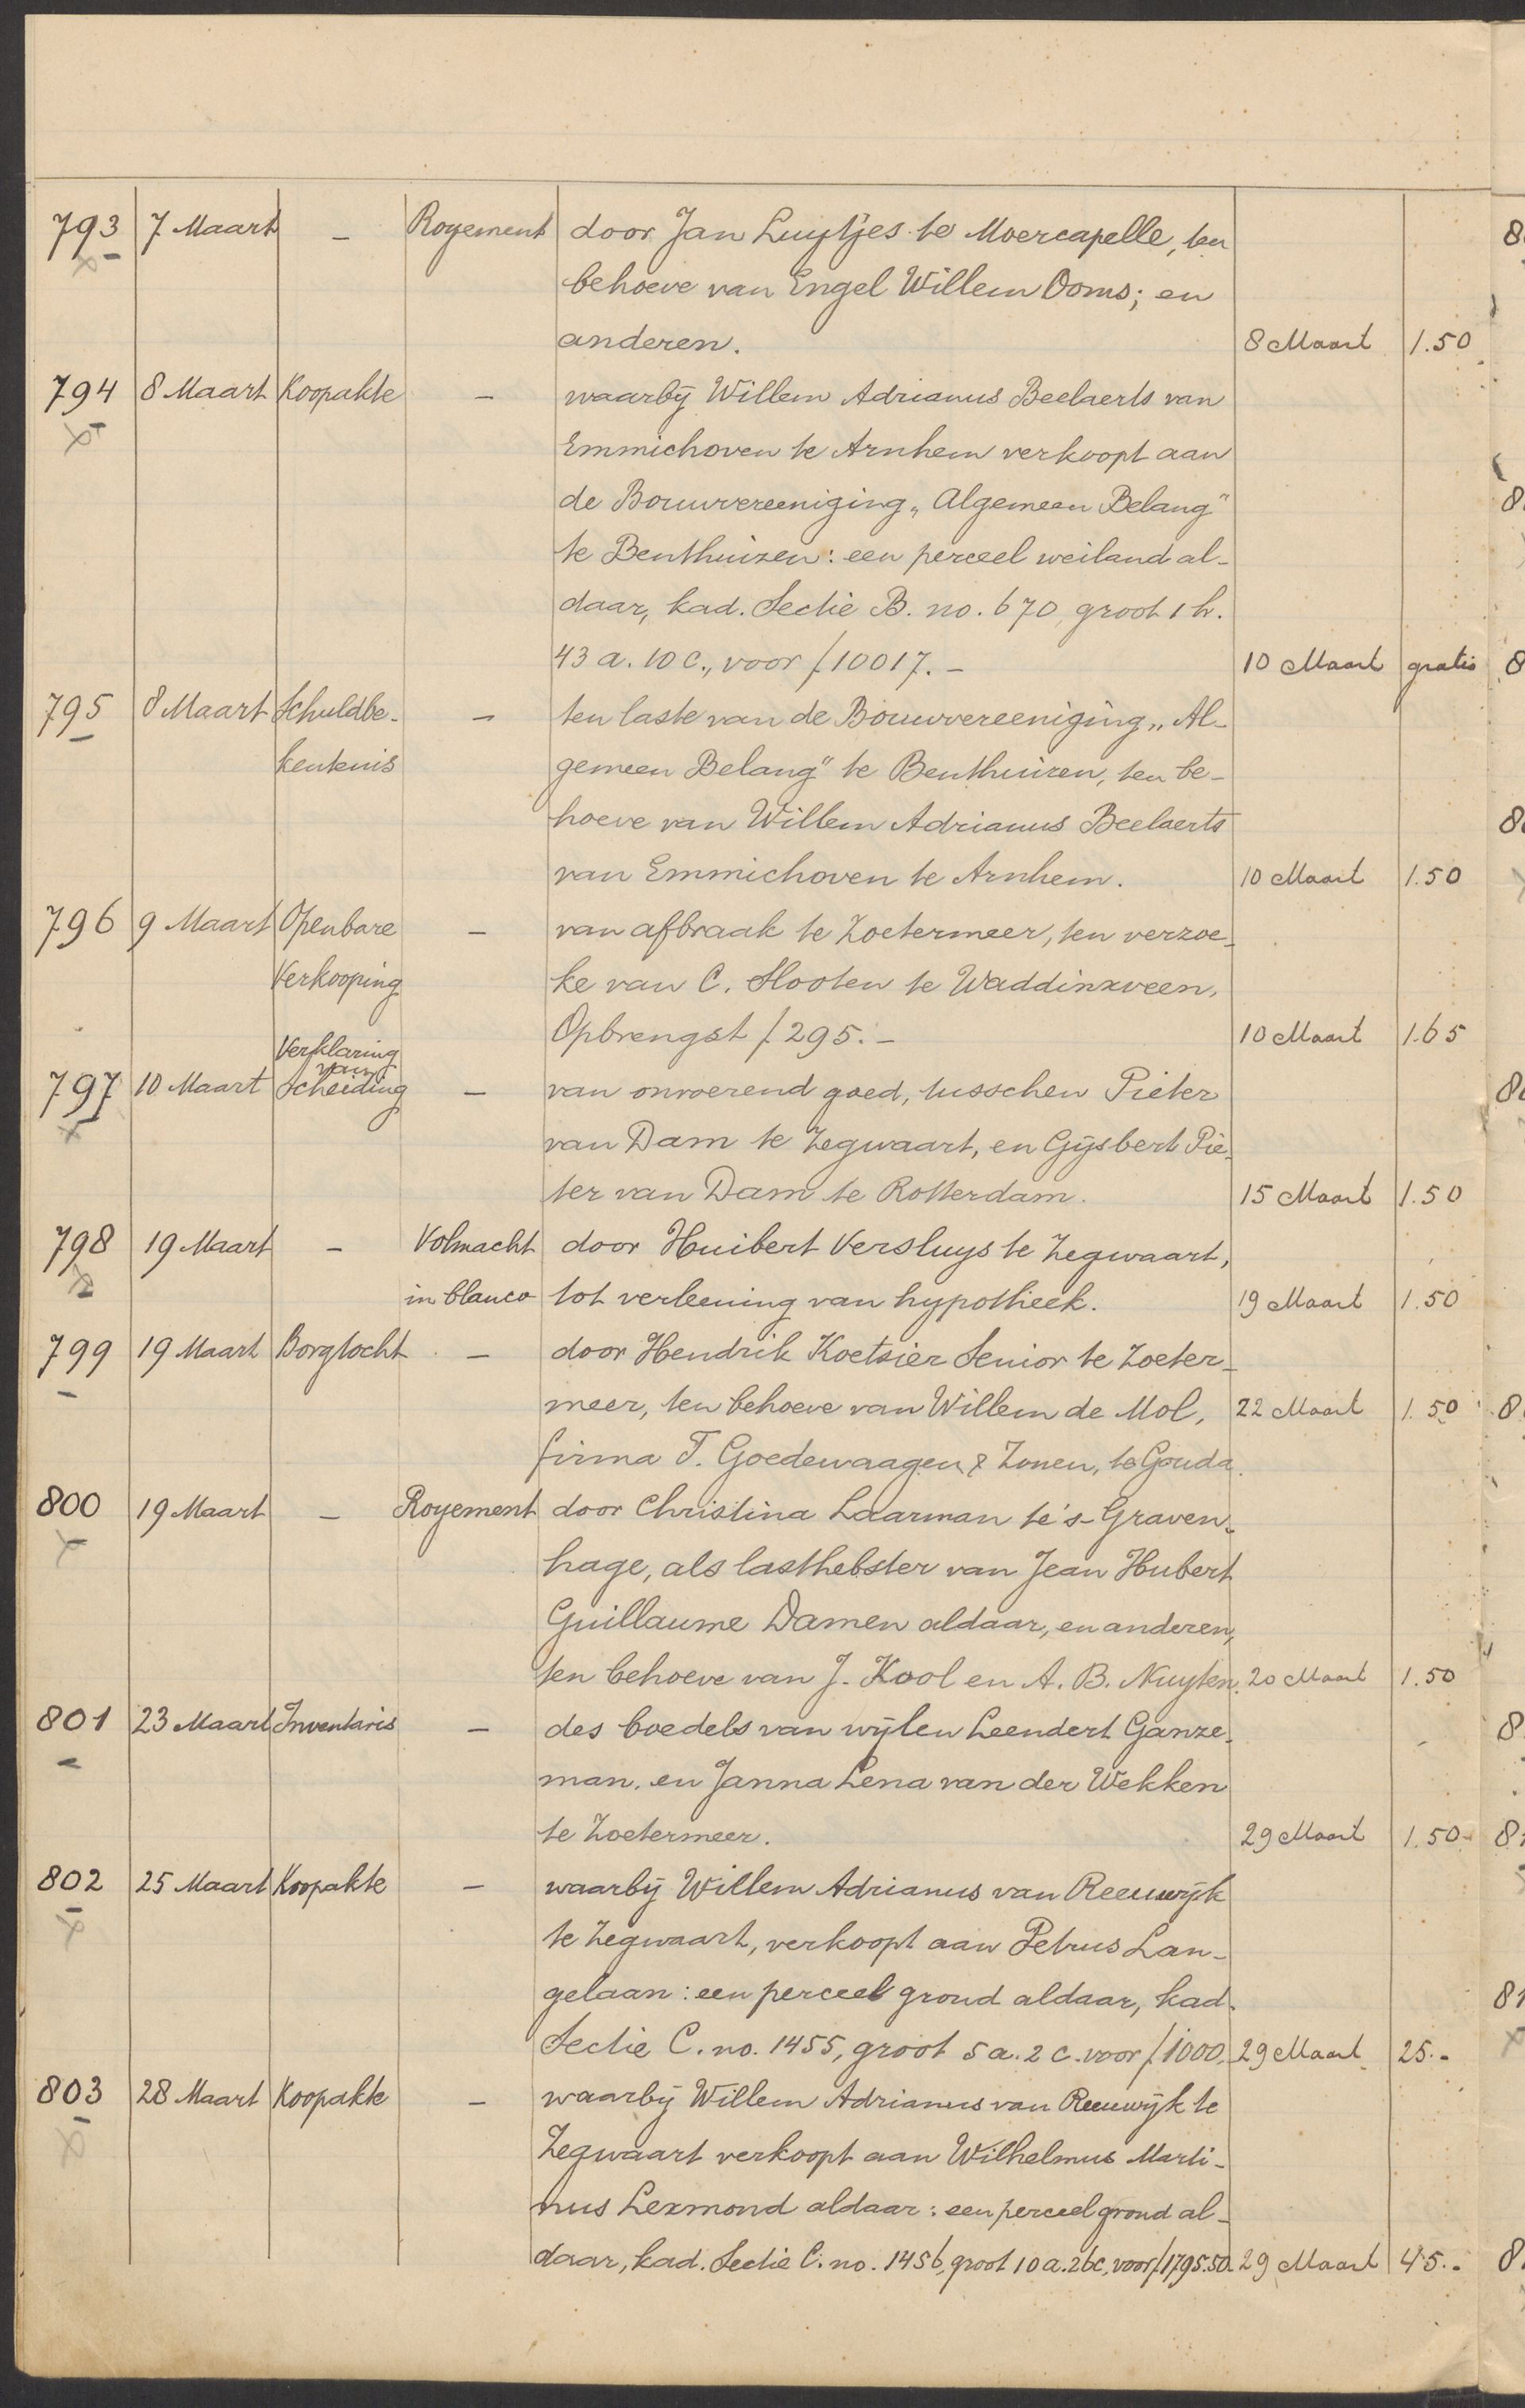 793 7 Maart – Royement door Jan Luytjes te Moercapelle, ten
behoeve van Engel Willem Ooms; en
anderen. 8 Maart 1.50
794 8 Maart Koopakte – waarbij Willem Adrianus Beelaerts van
Emmichoven te Arnhem verkoopt aan
de Bouwvereeniging „Algemeen Belang"
te Benthuizen: een perceel weiland al-
daar, kad. Sectie B. no. 670, groot 1 h.
43 a. 10 c., voor ƒ 10017.– 10 Maart gratis
795 8 Maart Schuldbe- – ten laste van de Bouwvereeniging „Al-
kentenis gemeen Belang" te Benthuizen, ten be-
hoeve van Willem Adrianus Beelaerts
van Emmichoven te Arnhem. 10 Maart 1.50
796 9 Maart Openbare – van afbraak te Zoetermeer, ten verzoe-
Verkooping ke van C. Slooten te Waddinxveen.
Opbrengst ƒ 295.– 10 Maart 1.65
Verklaring
van
797 10 Maart Scheiding – van onroerend goed, tusschen Pieter
van Dam te Zegwaart, en Gijsbert Pie-
ter van Dam te Rotterdam. 15 Maart 1.50
798 19 Maart – Volmacht door Huibert Versluys te Zegwaart,
in blanco tot verleening van hypotheek. 19 Maart 1.50
799 19 Maart Borgtocht – door Hendrik Koetsier Senior te Zoeter-
meer, ten behoeve van Willem de Mol, 22 Maart 1.50
firma T. Goedewaagen & Zonen, te Gouda.
800 19 Maart – Royement door Christina Laarman te 's-Graven-
hage, als lasthebster van Jean Hubert
Guillaume Damen aldaar, en anderen,
ten behoeve van J. Kool en A. B. Nuyten. 20 Maart 1.50
801 23 Maart Inventaris – des boedels van wijlen Leendert Ganze-
man, en Janna Lena van der Wekken
te Zoetermeer. 29 Maart 1.50
802 25 Maart Koopakte – waarbij Willem Adrianus van Reeuwijk
te Zegwaart, verkoopt aan Petrus Lan-
gelaan: een perceel grond aldaar, kad.
Sectie C. no. 1455, groot 5 a. 2 c. voor ƒ 1000. 29 Maart 25.-
803 28 Maart Koopakte – waarbij Willem Adrianus van Reeuwijk te
Zegwaart verkoopt aan Wilhelmus Marti-
nus Lexmond aldaar: een perceel grond al-
daar, kad. Sectie C. no. 1456, groot 10 a. 26 c, voor ƒ 1795.50. 29 Maart 45.-